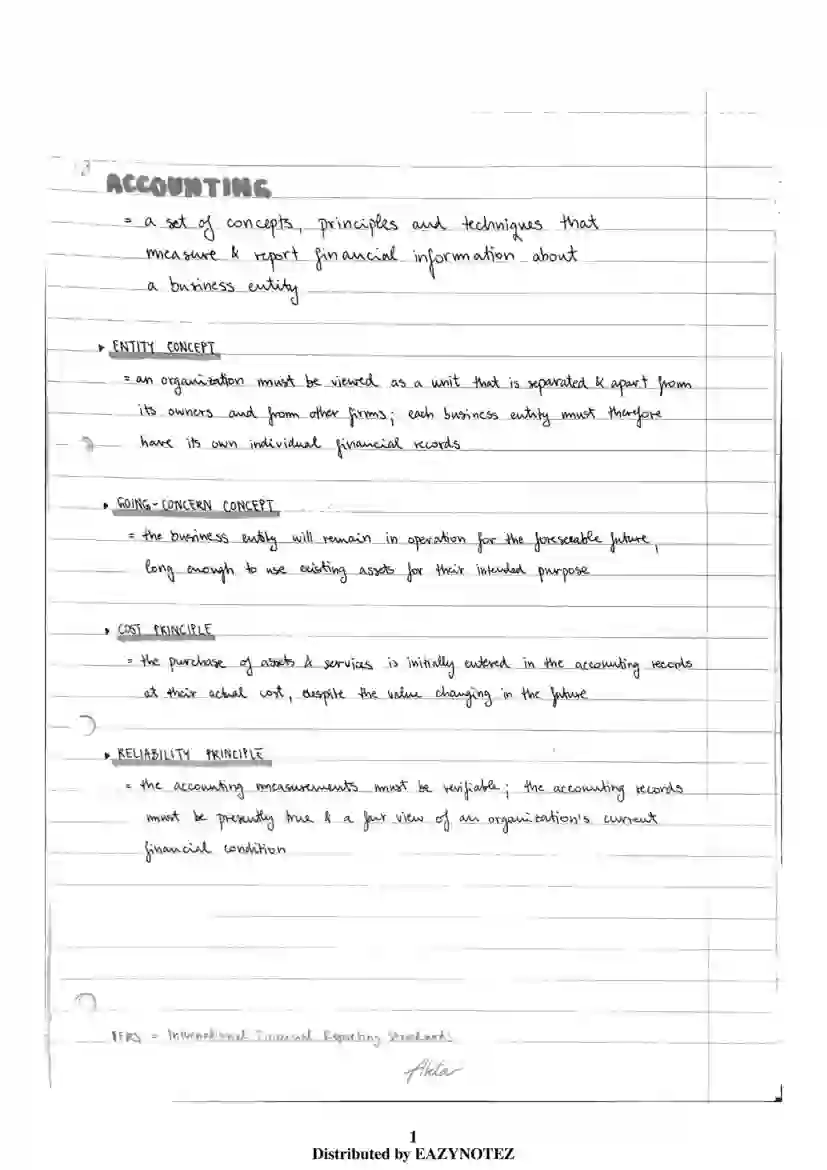 ACCOUNTING
= a set of concepts, principles and techniques that
measure & report financial information about
a business entity
▸ ENTITY CONCEPT
= an organization must be viewed as a unit that is separated & apart from
its owners and from other firms; each business entity must therefore
have its own individual financial records
▸ GOING-CONCERN CONCEPT
= the business entity will remain in operation for the foreseeable future,
long enough to use existing assets for their intended purpose
▸ COST PRINCIPLE
= the purchase of assets & services is initially entered in the accounting records
at their actual cost, despite the value changing in the future
▸ RELIABILITY PRINCIPLE
= the accounting measurements must be verifiable; the accounting records
must be presently true & a fair view of an organization's current
financial condition
IFRS = International Financial Reporting Standards
Akta
1
Distributed by EAZYNOTEZ